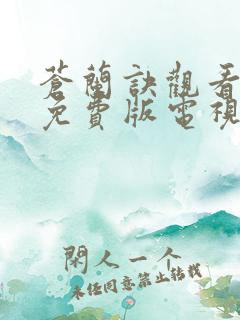 蒼蘭訣觀看
免費版電視
閑人一个
未经同意禁止转载